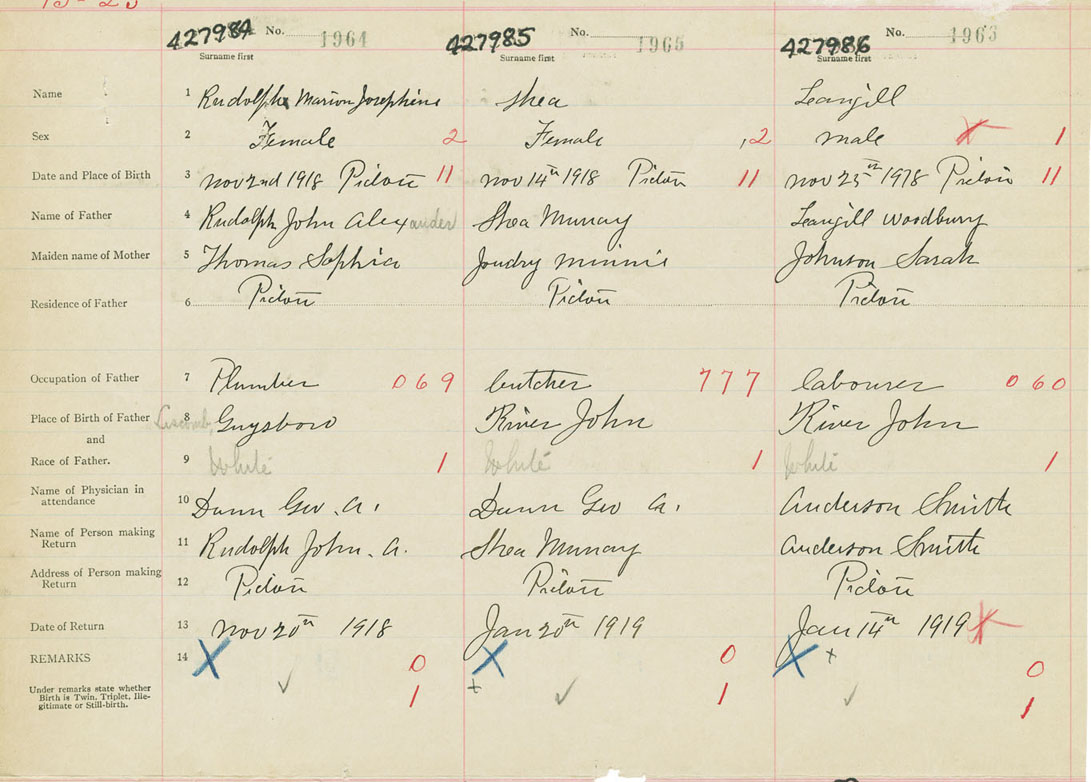 15-25
427984 No. 1964 427985 No. 1965 427986 No. 1963
Surname first Surname first Surname first
Name 1 Rudolph Marion Josephine Shea Langill
Sex 2 Female 2 Female ,2 male 1
Date and Place of Birth 3 nov 2nd 1918 Pictou 11 nov 14th 1918 Pictou 11 nov 25th 1918 Pictou 11
Name of Father 4 Rudolph John Alexander Shea Murray Langill Woodbury
Maiden name of Mother 5 Thomas Sophia Joudry Minnie Johnson Sarah
Residence of Father 6 Pictou Pictou Pictou
Occupation of Father 7 Plumber 069 butcher 777 labourer 060
Place of Birth of Father 8 Liscomb, Guysboro River John River John
and
Race of Father. 9 White 1 White 1 White 1
Name of Physician in
attendance 10 Dunn Geo. A. Dunn Geo A. Anderson Smith
Name of Person making
Return 11 Rudolph John. A. Shea Murray Anderson Smith
Address of Person making
Return 12 Pictou Pictou Pictou
Date of Return 13 nov 20th 1918 Jan 20th 1919 Jan 14th 1919
REMARKS 14 X 0 X 0 X + 0
Under remarks state whether
Birth is Twin, Triplet, Ille-
gitimate or Still-birth. ✓ 1 + ✓ 1 ✓ 1